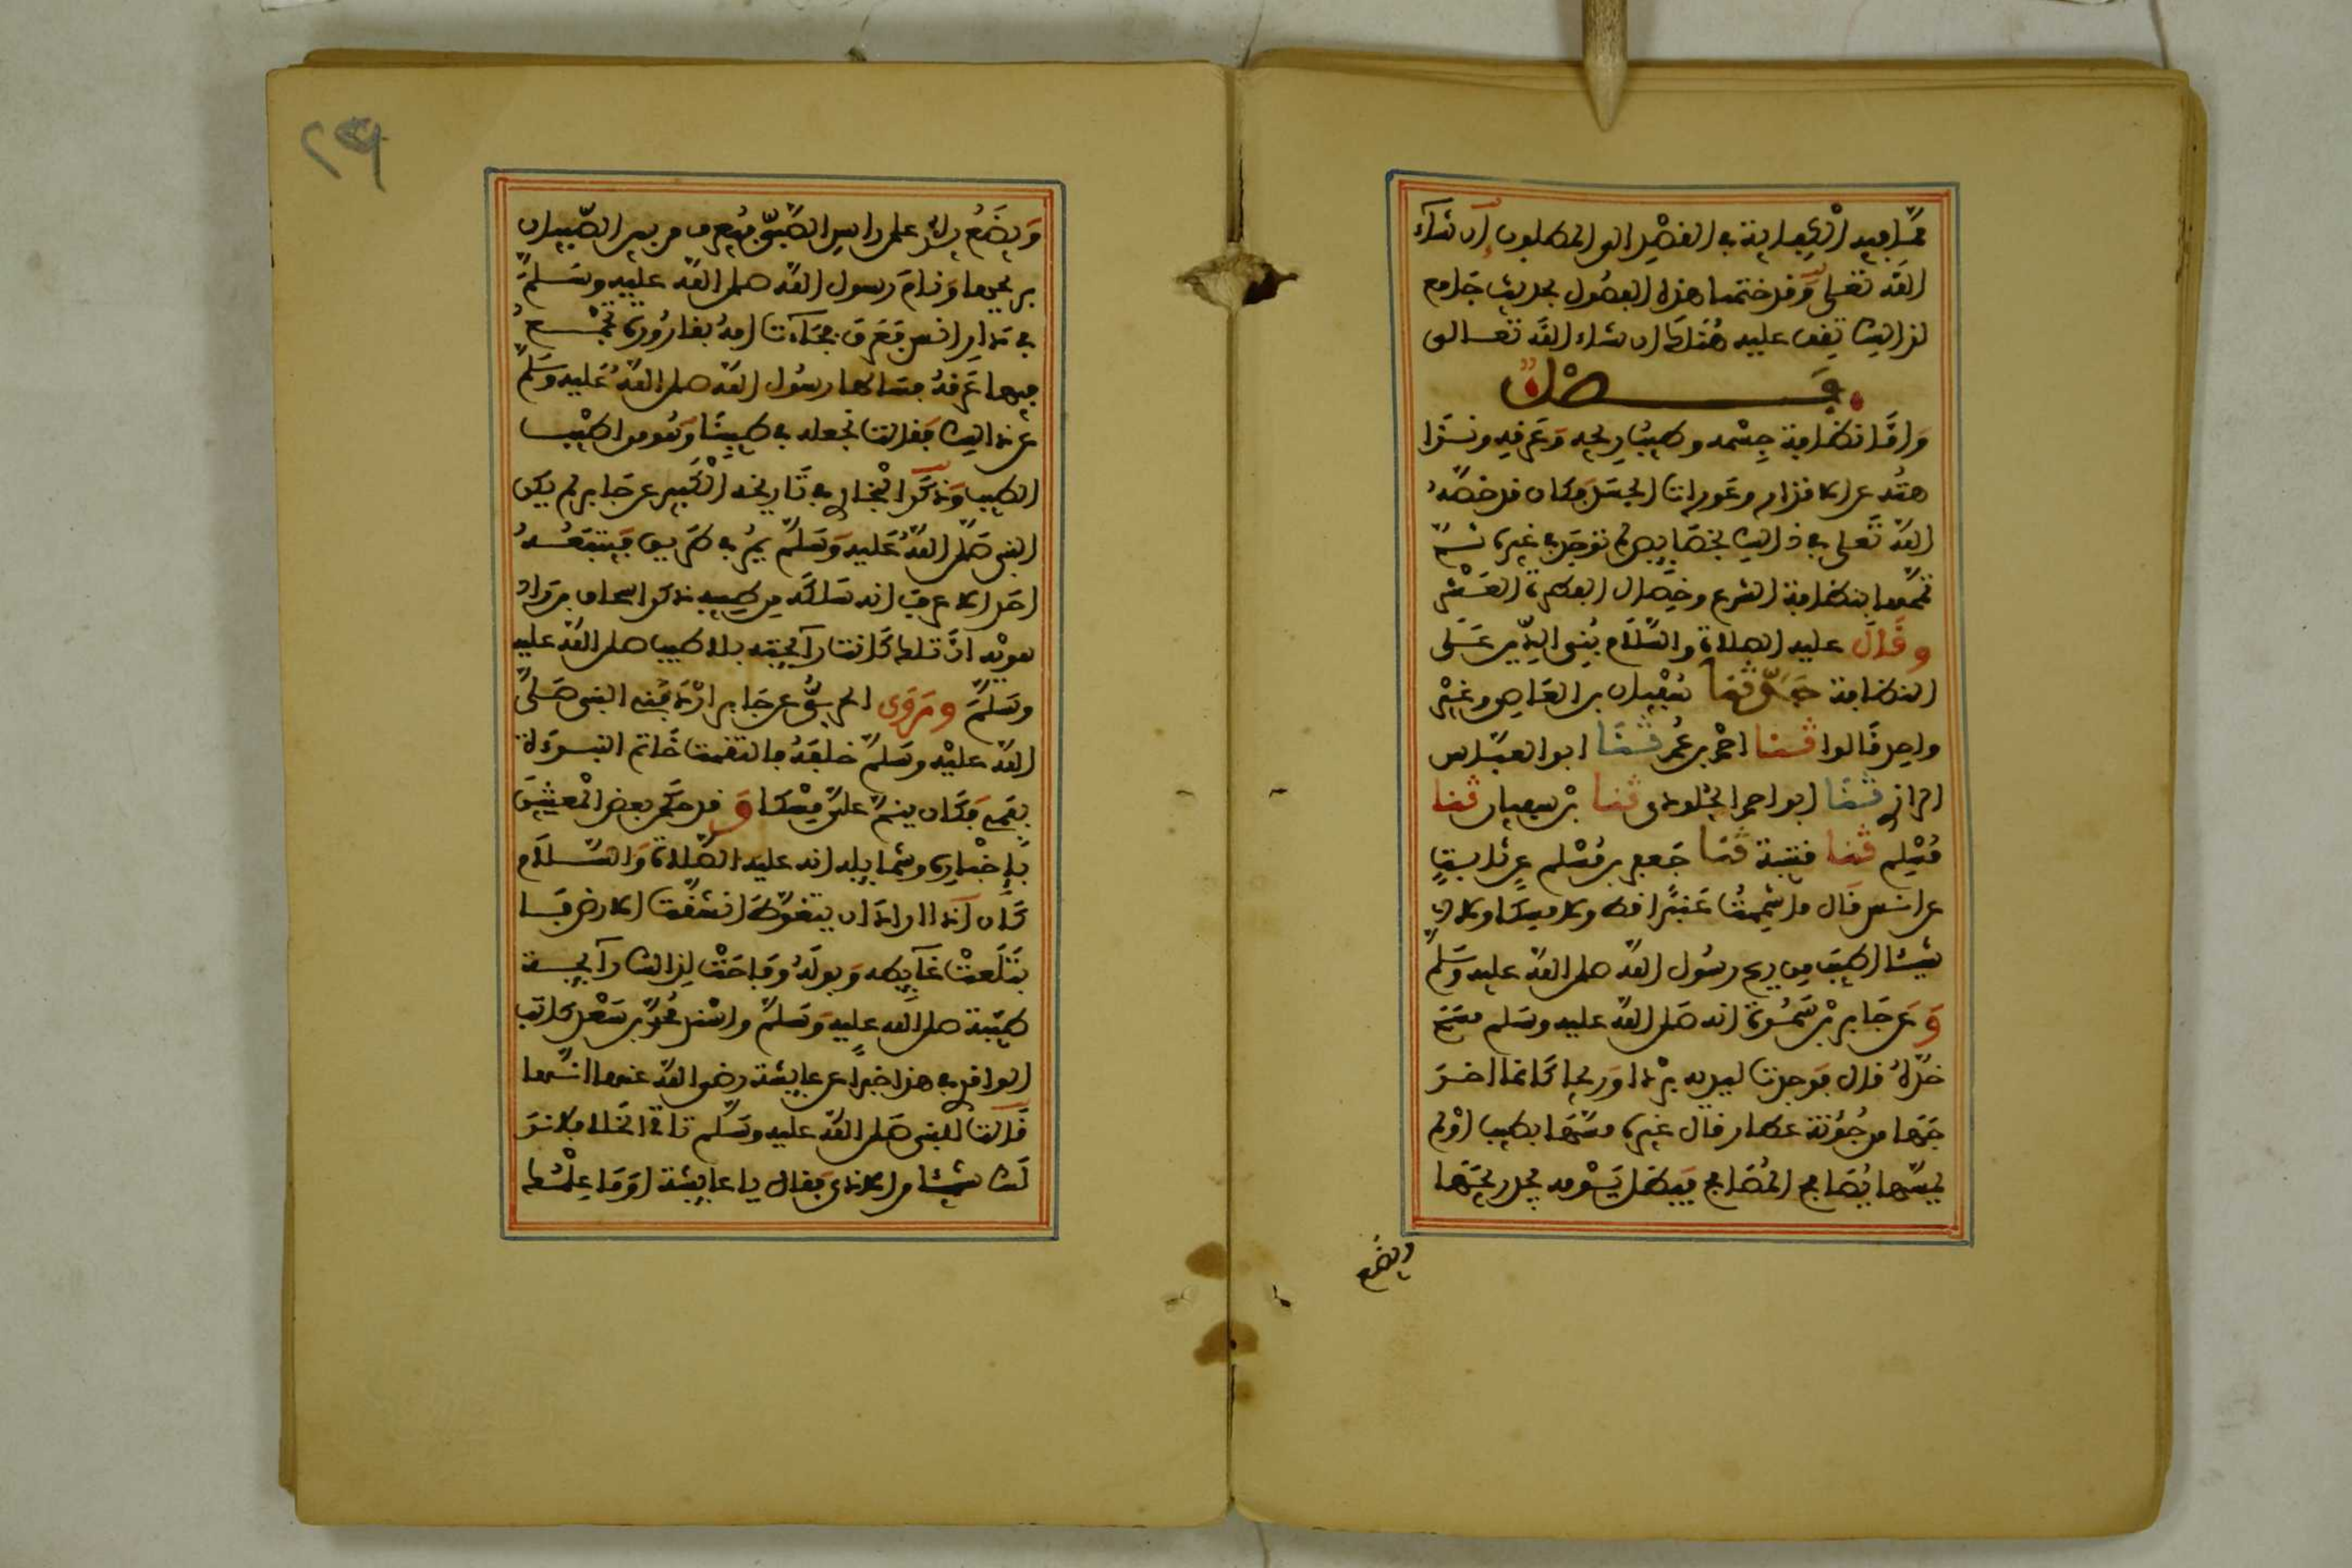 مما فيه الكفاية في القصد إلى المطلوب إن شاء
الله تعلى وقد ختمنا هذه الفصول بحديث جامع
لذالك تقف عليه هناك ان شاء الله تعالى
فصل
واما نظافة جسمه وطيب ريحه وعرفه ونزا
هته عن الاقذار وعورات الجسد فكان قد خصه
الله تعلى في ذالك بخصايص لم توجد في غيره ثم
تممها بنظافة الشرع وخصال الفطرة العشر
وقال عليه الصلاة والسلام بني الدين على
النظافة حدثنا سفيان بن العاصي وغير
واحد قالوا ثنا احمد بن عمر ثنا ابو العباس
الرازي ثنا ابو احمد الجلودي ثنا بن سفيان ثنا
مسلم ثنا قتيبة ثنا جعفر بن مسلم عن ثابت
عن انس قال ما شممت عنبرا قط ولا مسكا ولا
شيئا اطيب من ريح رسول الله صلى الله عليه وسلم
وعن جابر بن سمرة انه صلى الله عليه وسلم مسح
خده قال فوجدت ليده بردا وريحا كانما اخر
جها من جؤنة عطار قال غيره مسها بطيب او لم
يمسها يصافح المصافح فيظل يومه يجد ريحها
ويضع
٢٩
ويضع يده على راس الصبي فيعرف من بين الصبيان
بريحها ونام رسول الله صلى الله عليه وسلم
في دار انس فعرق فجاءت امه بقارورة تجمع
فيها عرقه فسالها رسول الله صلى الله عليه وسلم
عن ذالك فقالت نجعله في طيبنا وهو من اطيب
الطيب وذكر البخاري في تاريخه الكبير عن جابر لم يكن
النبي صلى الله عليه وسلم يمر في طريق فيتبعه
احد الا عرف انه سلكه من طيبه ذكر اسحاق بن راه
هويه ان تلك كانت رآيحته بلا طيب صلى الله عليه
وسلم وروى الحربي عن جابر اردفني النبي صلى
الله عليه وسلم خلفه فالتقمت خاتم النبوءة
بفمي فكان ينم علي مسكا وقد حكى بعض المعتنين
باخباره وشمايله انه عليه الصلاة والسلام
كان اذا اراد ان يتغوط انشقت الارض فا
بتلعت غآيطه وبوله وفاحت لذالك رآيحة
طيبة صلى الله عليه وسلم واسند محمد بن سعد كاتب
الواقدي في هذا خبرا عن عايشة رضي الله عنها انها
قالت للنبي صلى الله عليه وسلم تاتي الخلاء فلا نر
منك شيئا من الاذى فقال يا عايشة او ما علمت